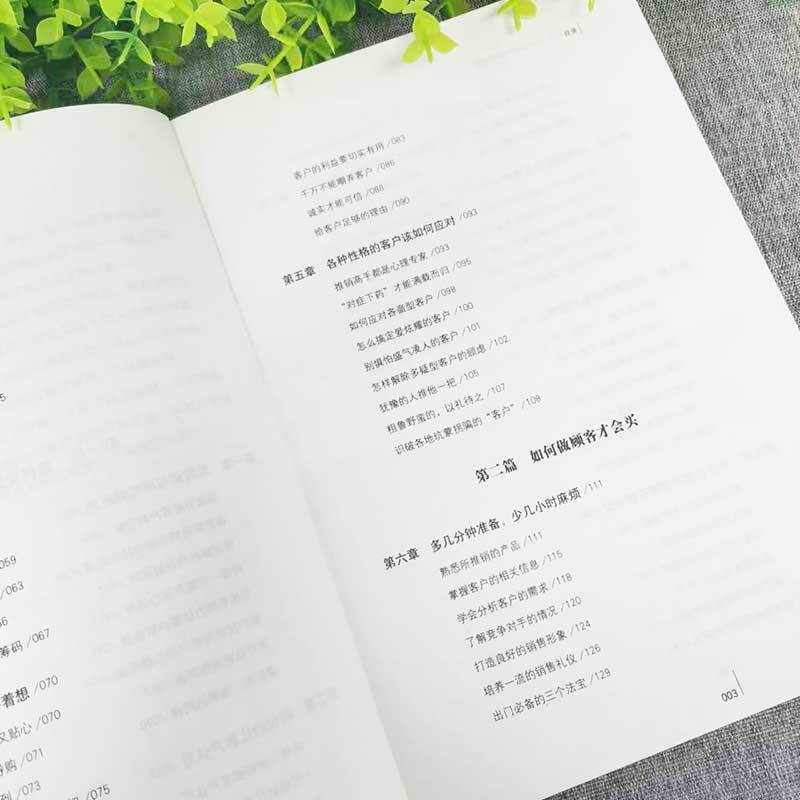 5
059
063
筹码 /067
着想 /070
又贴心 /070
购 /071
列 /073
/075
目录
客户的利益要切实有用 /083
千万不能嘲弄客户 /086
诚实才能可信 /088
给客户足够的理由 /090
第五章 各种性格的客户该如何应对 /093
推销高手都是心理专家 /093
“对症下药”才能满载而归 /095
如何应对吝啬型客户 /098
怎么搞定爱炫耀的客户 /100
别惧怕盛气凌人的客户 /101
怎样解除多疑型客户的顾虑 /102
犹豫的人推他一把 /105
粗鲁野蛮的，以礼待之 /107
识破各地坑蒙拐骗的“客户” /108
第二篇 如何做顾客才会买
第六章 多几分钟准备，少几小时麻烦 /111
熟悉所推销的产品 /111
掌握客户的相关信息 /115
学会分析客户的需求 /118
了解竞争对手的情况 /120
打造良好的销售形象 /124
培养一流的销售礼仪 /126
出门必备的三个法宝 /129
003